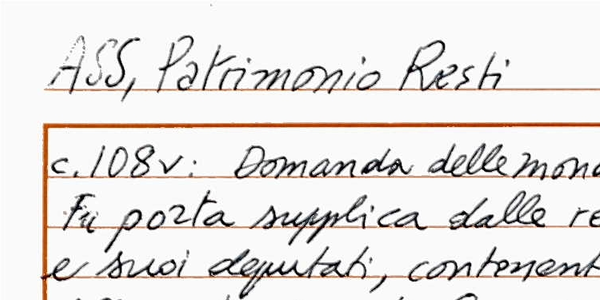 ASS, Patrimonio Resti
c. 108v: Domanda delle mona
Fu porta supplica dalle re
e suoi deputati, contenent